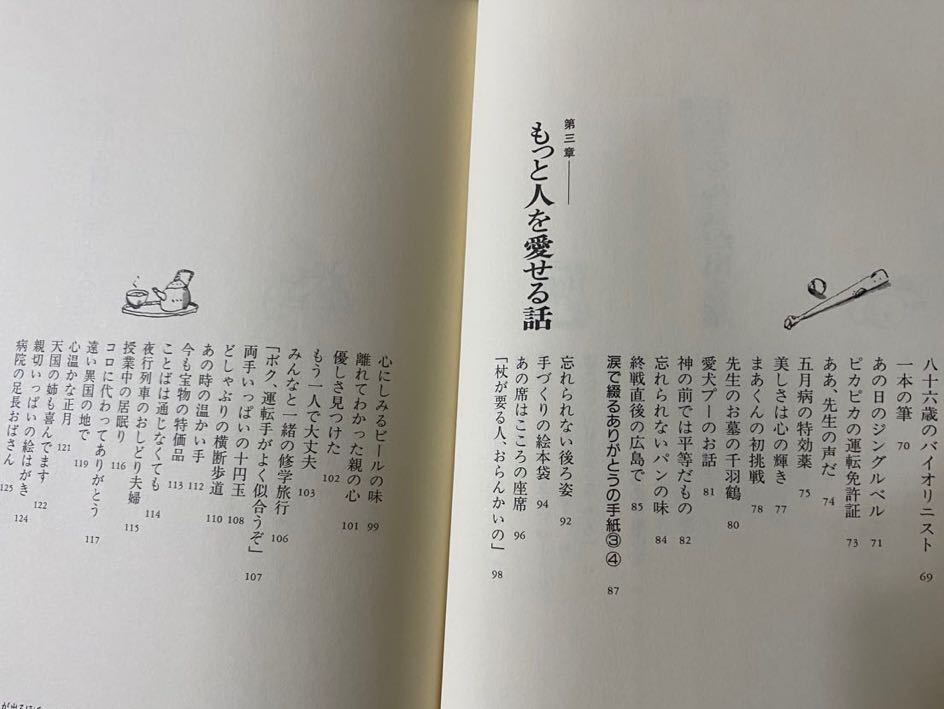 八十六歳のバイオリニスト 69
一本の筆 70
あの日のジングルベル 71
ピカピカの運転免許証 73
ああ、先生の声だ 74
五月病の特効薬 75
美しさは心の輝き 77
まあくんの初挑戦 78
先生のお墓の千羽鶴 80
愛犬プーのお話 81
神の前では平等だもの 82
忘れられないパンの味 84
終戦直後の広島で 85
涙で綴るありがとうの手紙③④ 87
第三章
もっと人を愛せる話
忘れられない後ろ姿 92
手づくりの絵本袋 94
あの席はこころの座席 96
「杖が要る人、おらんかいの」 98
心にしみるビールの味 99
離れてわかった親の心 101
優しさ見つけた 102
もう一人で大丈夫 103
みんなと一緒の修学旅行 106
「ボク、運転手がよく似合うぞ」 107
両手いっぱいの十円玉 108
どしゃぶりの横断歩道 110
あの時の温かい手 112
今も宝物の特価品 113
ことばは通じなくても 114
夜行列車のおしどり夫婦 115
授業中の居眠り 116
コロに代わってありがとう 117
遠い異国の地で 119
心温かな正月 121
天国の姉も喜んでます 122
親切いっぱいの絵はがき 124
病院の足長おばさん 125